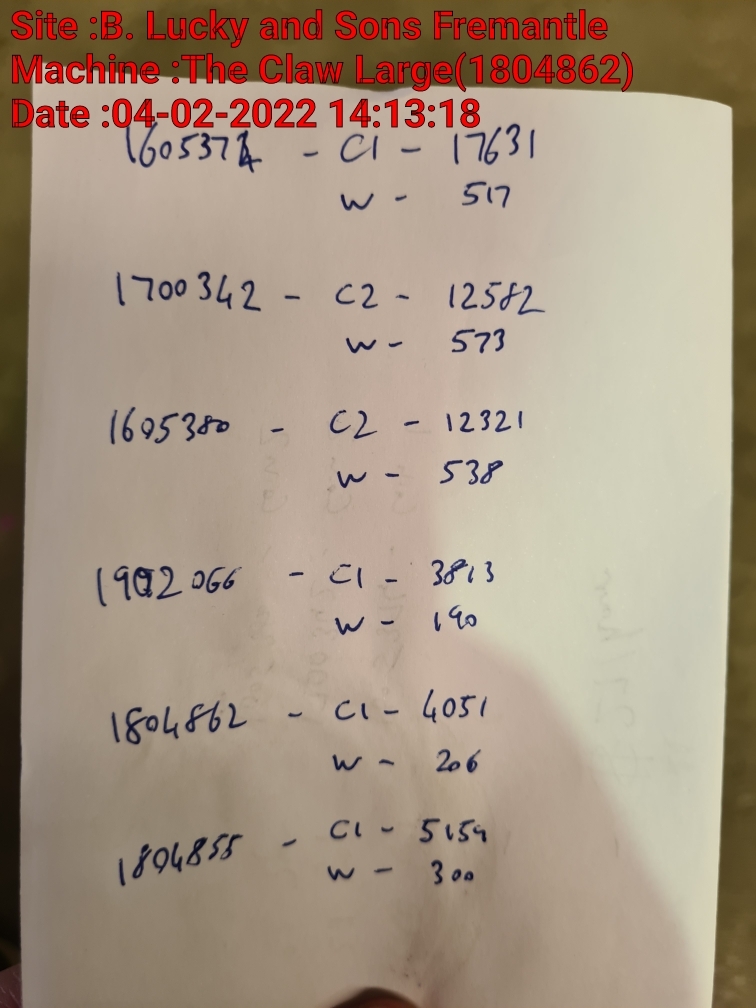 Site :B. Lucky and Sons Fremantle
Machine :The Claw Large(1804862)
Date :04-02-2022 14:13:18
- C1 - 17631
W - 517
1700342 - C2 - 12582
W - 573
1605380 - C2 - 12321
W - 538
- C1 - 3813
W - 190
1804862 - C1 - 4051
W - 206
1804855 - C1 -
W - 300